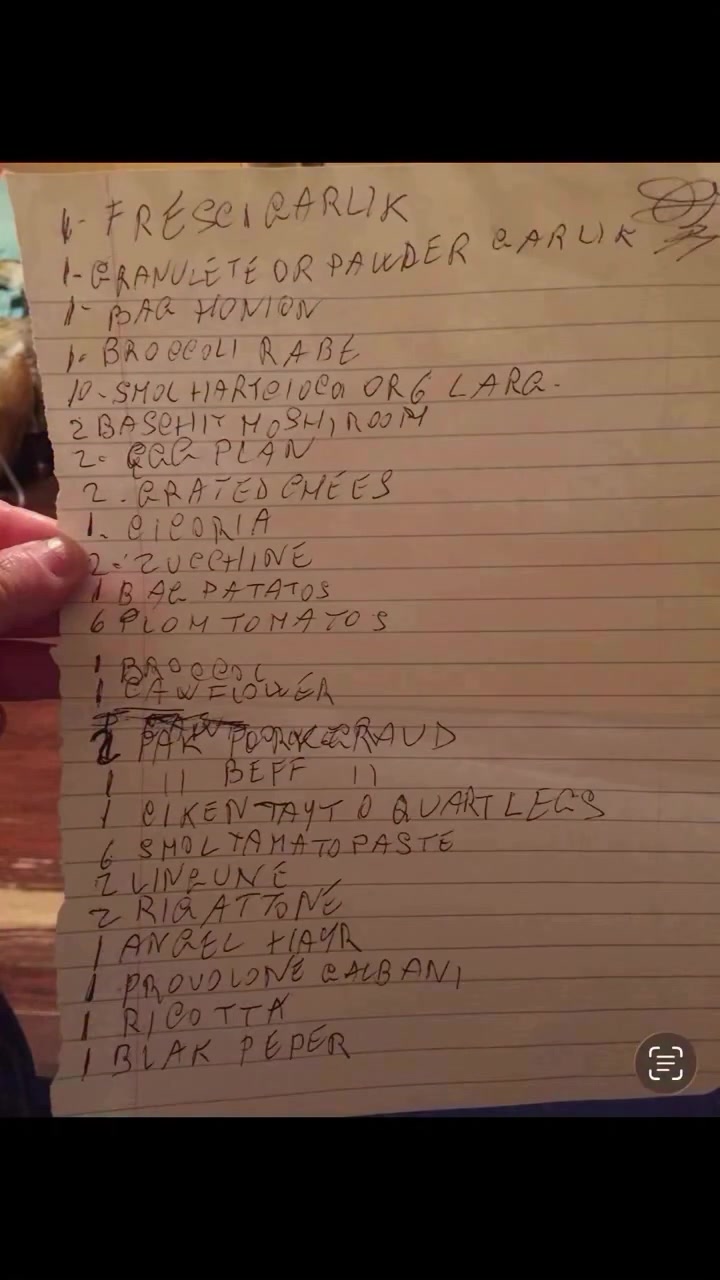 1- FRESCI GARLIK
1- GRANULETE OR PAUDER GARLIK
1- BAG HONION
1- BROCCOLI RABE
10- SMOL HARTCIOCO OR 6 LARG-
2 BASCHIT MOSHIROOM
2- EGG PLAN
2. GRATED CHEES
1. CICORIA
2- ZUCCHINE
1 BAG PATATOS
6 PLOM TOMATOS
1 BROCCOL
1 CAWFLOWER
2 PAK PORK GRAUD
1 11 BEFF 11
1 CIKEN TAYT O QUART LEGS
6 SMOL TAMATO PASTE
2 LINGUNE
2 RIGATTONE
1 ANGEL HAYR
1 PROVOLONE GALBANI
1 RICOTTA
1 BLAK PEPER